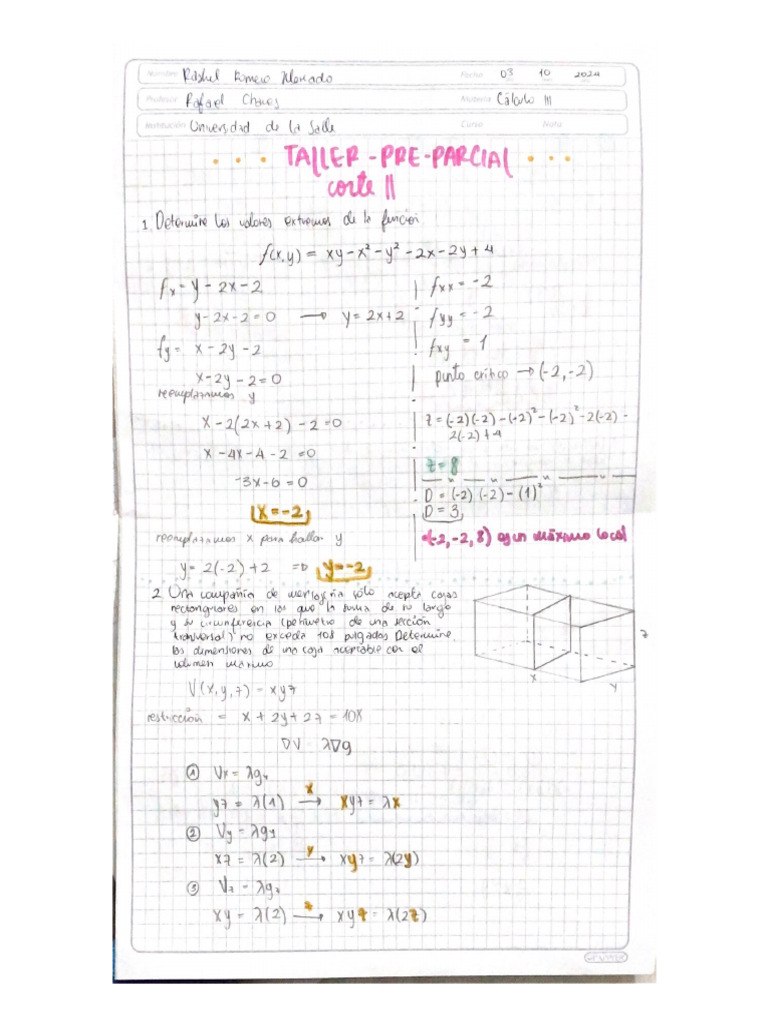 Nombre Rashel Romero Mercado Fecha 03 10 2024
Profesor Rafael Chaves Materia Cálculo III
Institución Universidad de la Salle Curso Nota
TALLER - PRE-PARCIAL
corte II
1. Determine los valores extremos de la función
f(x,y) = xy - x² - y² - 2x - 2y + 4
fx = y - 2x - 2
y - 2x - 2 = 0 → y = 2x + 2
fy = x - 2y - 2
x - 2y - 2 = 0
reemplazamos y
x - 2(2x + 2) - 2 = 0
x - 4x - 4 - 2 = 0
-3x - 6 = 0
x = -2
reemplazamos x para hallar y
y = 2(-2) + 2 ⇒ y = -2
fxx = -2
fyy = -2
fxy = 1
punto critico → (-2,-2)
z = (-2)(-2) - (-2)² - (-2)² - 2(-2) -
2(-2) + 4
z = 8
D = (-2)(-2) - (1)²
D = 3
(-2,-2,8) es un máximo local
2. Una compañia de mensajeria sólo acepta cajas
rectangulares en las que la suma de su largo
y su circunferencia (perimetro de una sección
transversal) no exceda 108 pulgadas Determine
las dimensiones de una caja aceptable con el
volumen maximo
x
y
z
V(x,y,z) = xyz
restricción = x + 2y + 2z = 108
∇V = λ∇g
① Vx = λgx
yz = λ(1) —x→ xyz = λx
② Vy = λgy
xz = λ(2) —y→ xyz = λ(2y)
③ Vz = λgz
xy = λ(2) —z→ xyz = λ(2z)